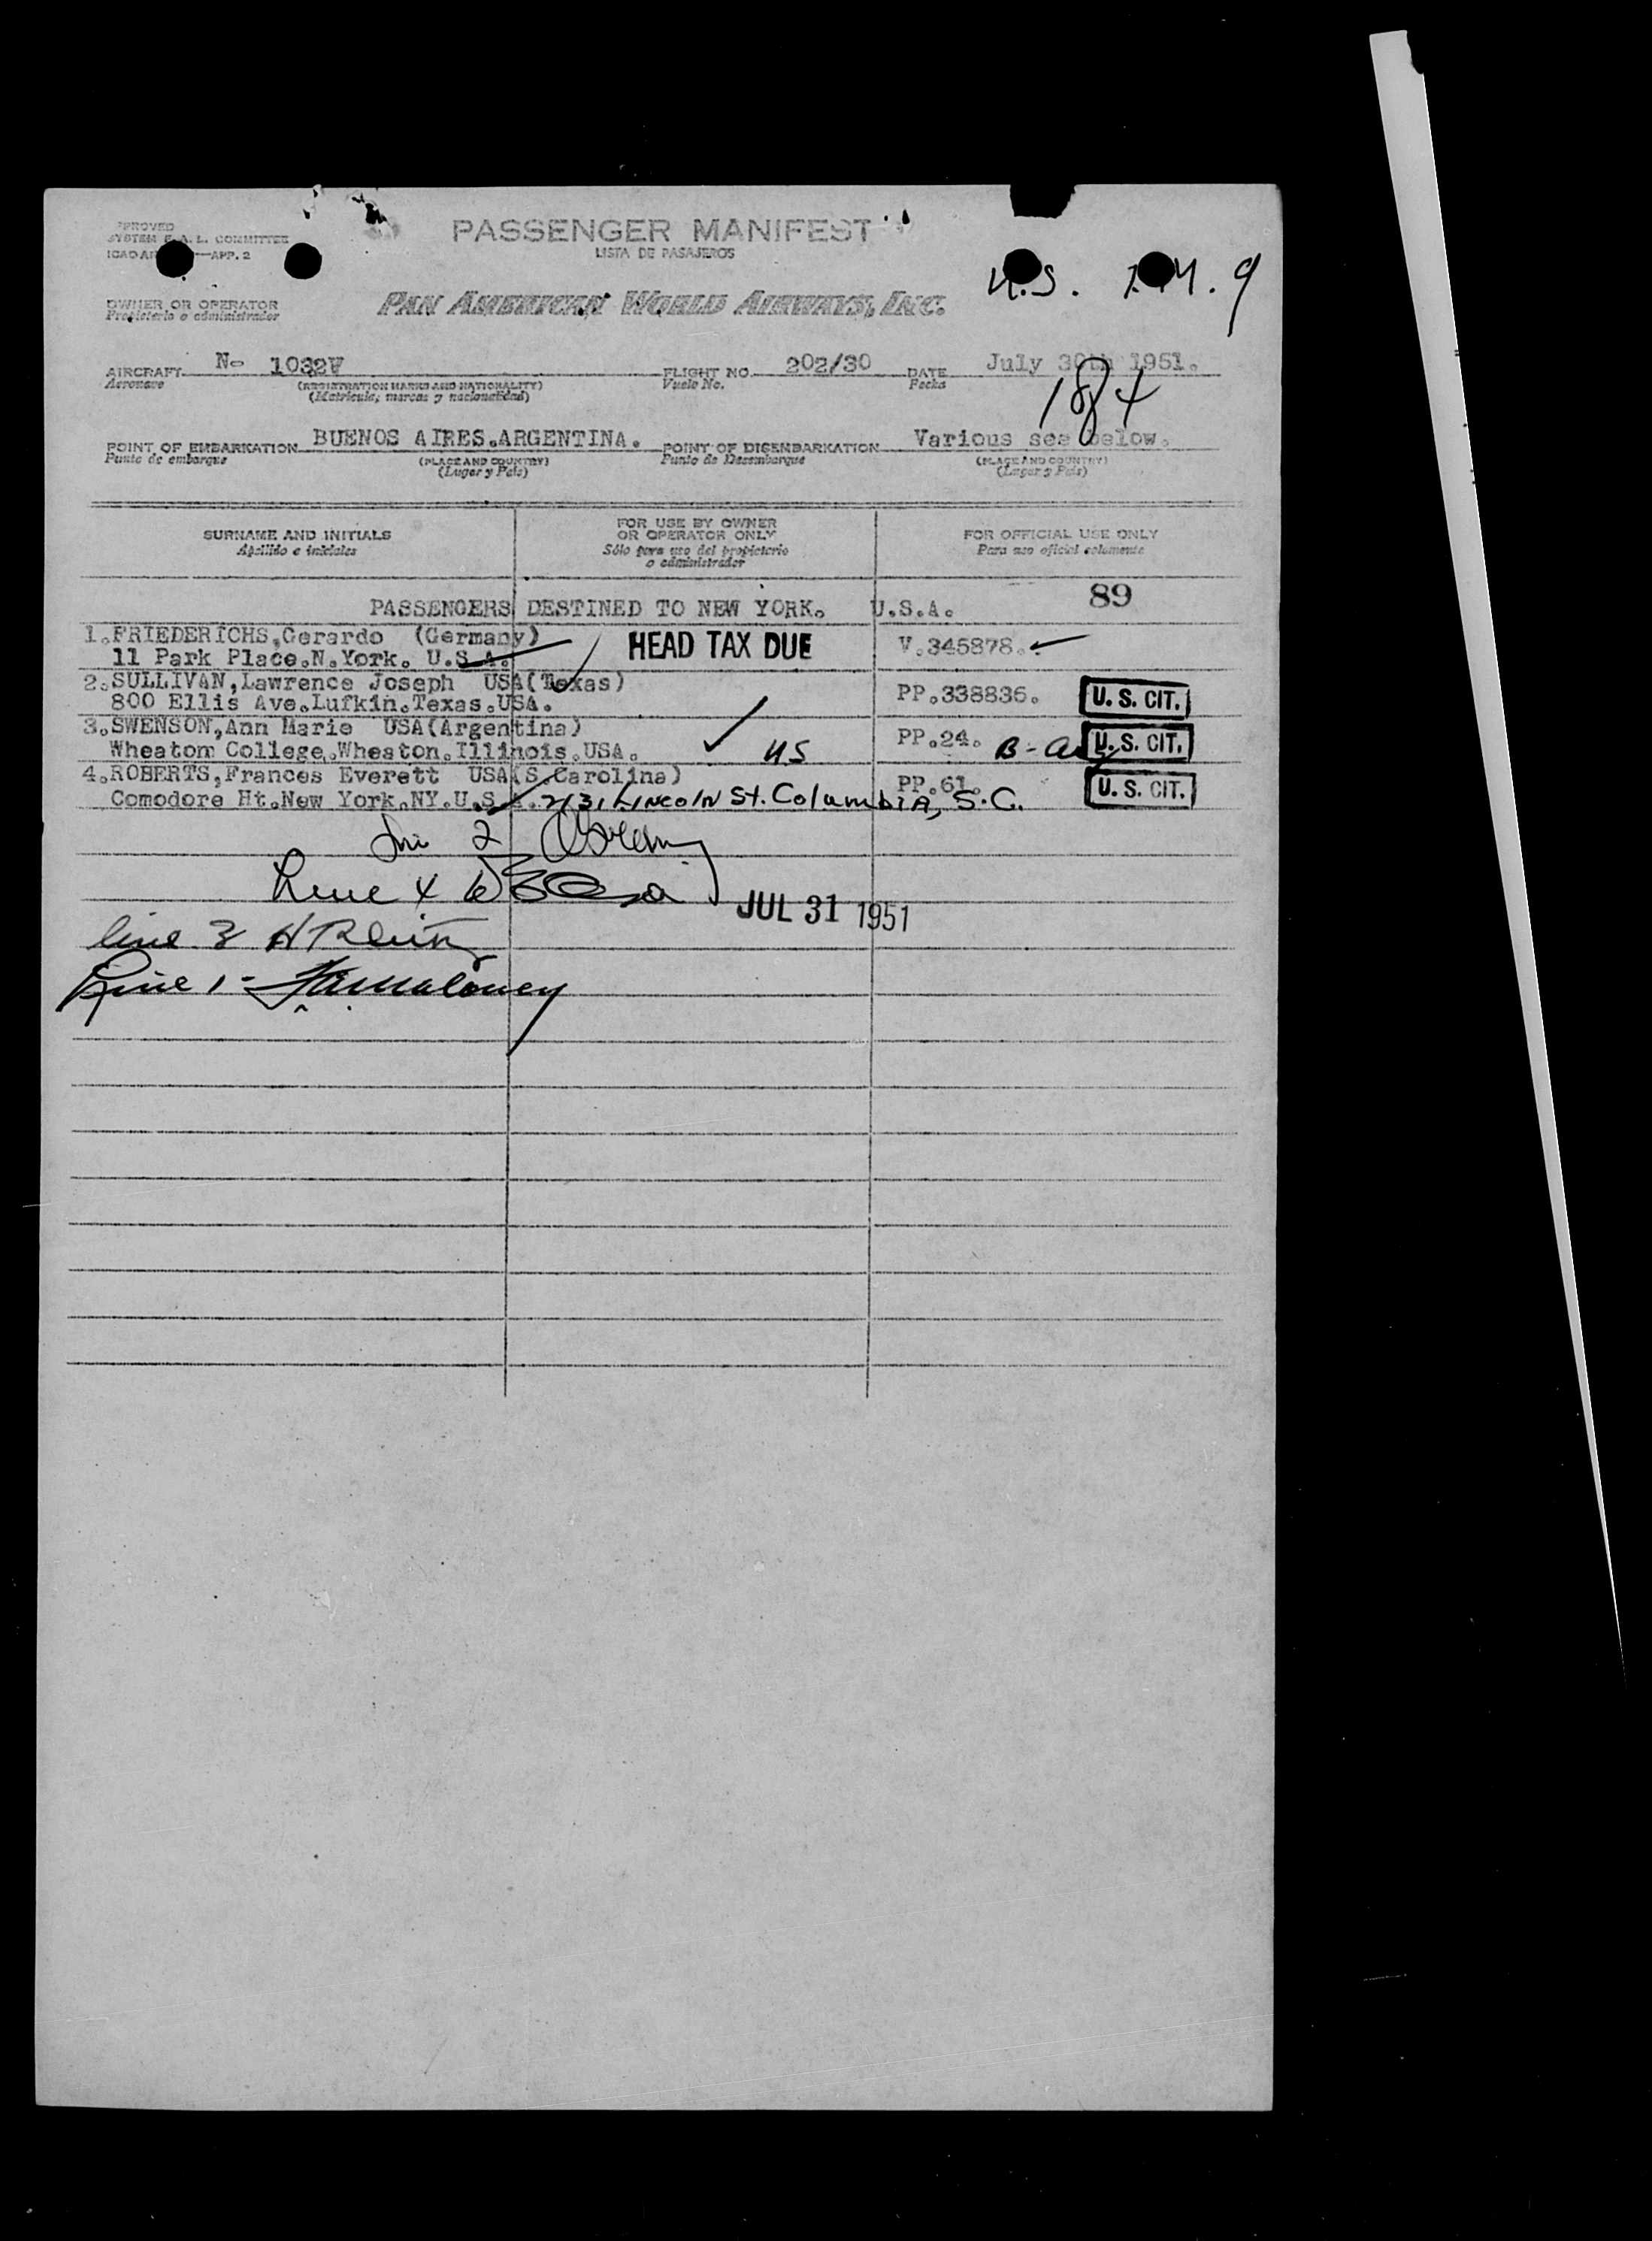 PASSENGER MANIFEST
LISTA DE PASAJEROS
PPROVED
SYSTEM F.A.L. COMMITTEE
ICAO —APP. 2
U.S.
OWNER OR OPERATOR
Propietario o administrador
PAN AMERICAN WORLD AIRWAYS, INC.
AIRCRAFT N- 1032V FLIGHT NO. 202/30 DATE July 30th 1951.
Aeronave (REGISTRATION MARKS AND NATIONALITY) Vuelo No. Fecha
(Matrícula, marcas y nacionalidad)
184
POINT OF EMBARKATION BUENOS AIRES.ARGENTINA. POINT OF DISEMBARKATION Various see below.
Punto de embarque (PLACE AND COUNTRY) Punto de Desembarque (PLACE AND COUNTRY)
(Lugar y País) (Lugar y País)
SURNAME AND INITIALS FOR USE BY OWNER OR OPERATOR ONLY FOR OFFICIAL USE ONLY
Apellido e iniciales Sólo para uso del propietario o administrador Para uso oficial solamente
89
PASSENGERS DESTINED TO NEW YORK. U.S.A.
1.FRIEDERICHS,Gerardo (Germany) HEAD TAX DUE V.345878.
11 Park Place.N.York. U.S.A.
2.SULLIVAN,Lawrence Joseph USA(Texas) PP.338836. U. S. CIT.
800 Ellis Ave.Lufkin.Texas.USA.
3.SWENSON,Ann Marie USA(Argentina) PP.24. U. S. CIT.
Wheaton College.Wheaton.Illinois.USA. US
4.ROBERTS,Frances Everett USA(S.Carolina) PP.61. U. S. CIT.
Comodore Ht.New York.NY.U.S.A. 2131 Lincoln St. Columbia, S.C.
2
Line 4
JUL 31 1951
line 3
Line 1-